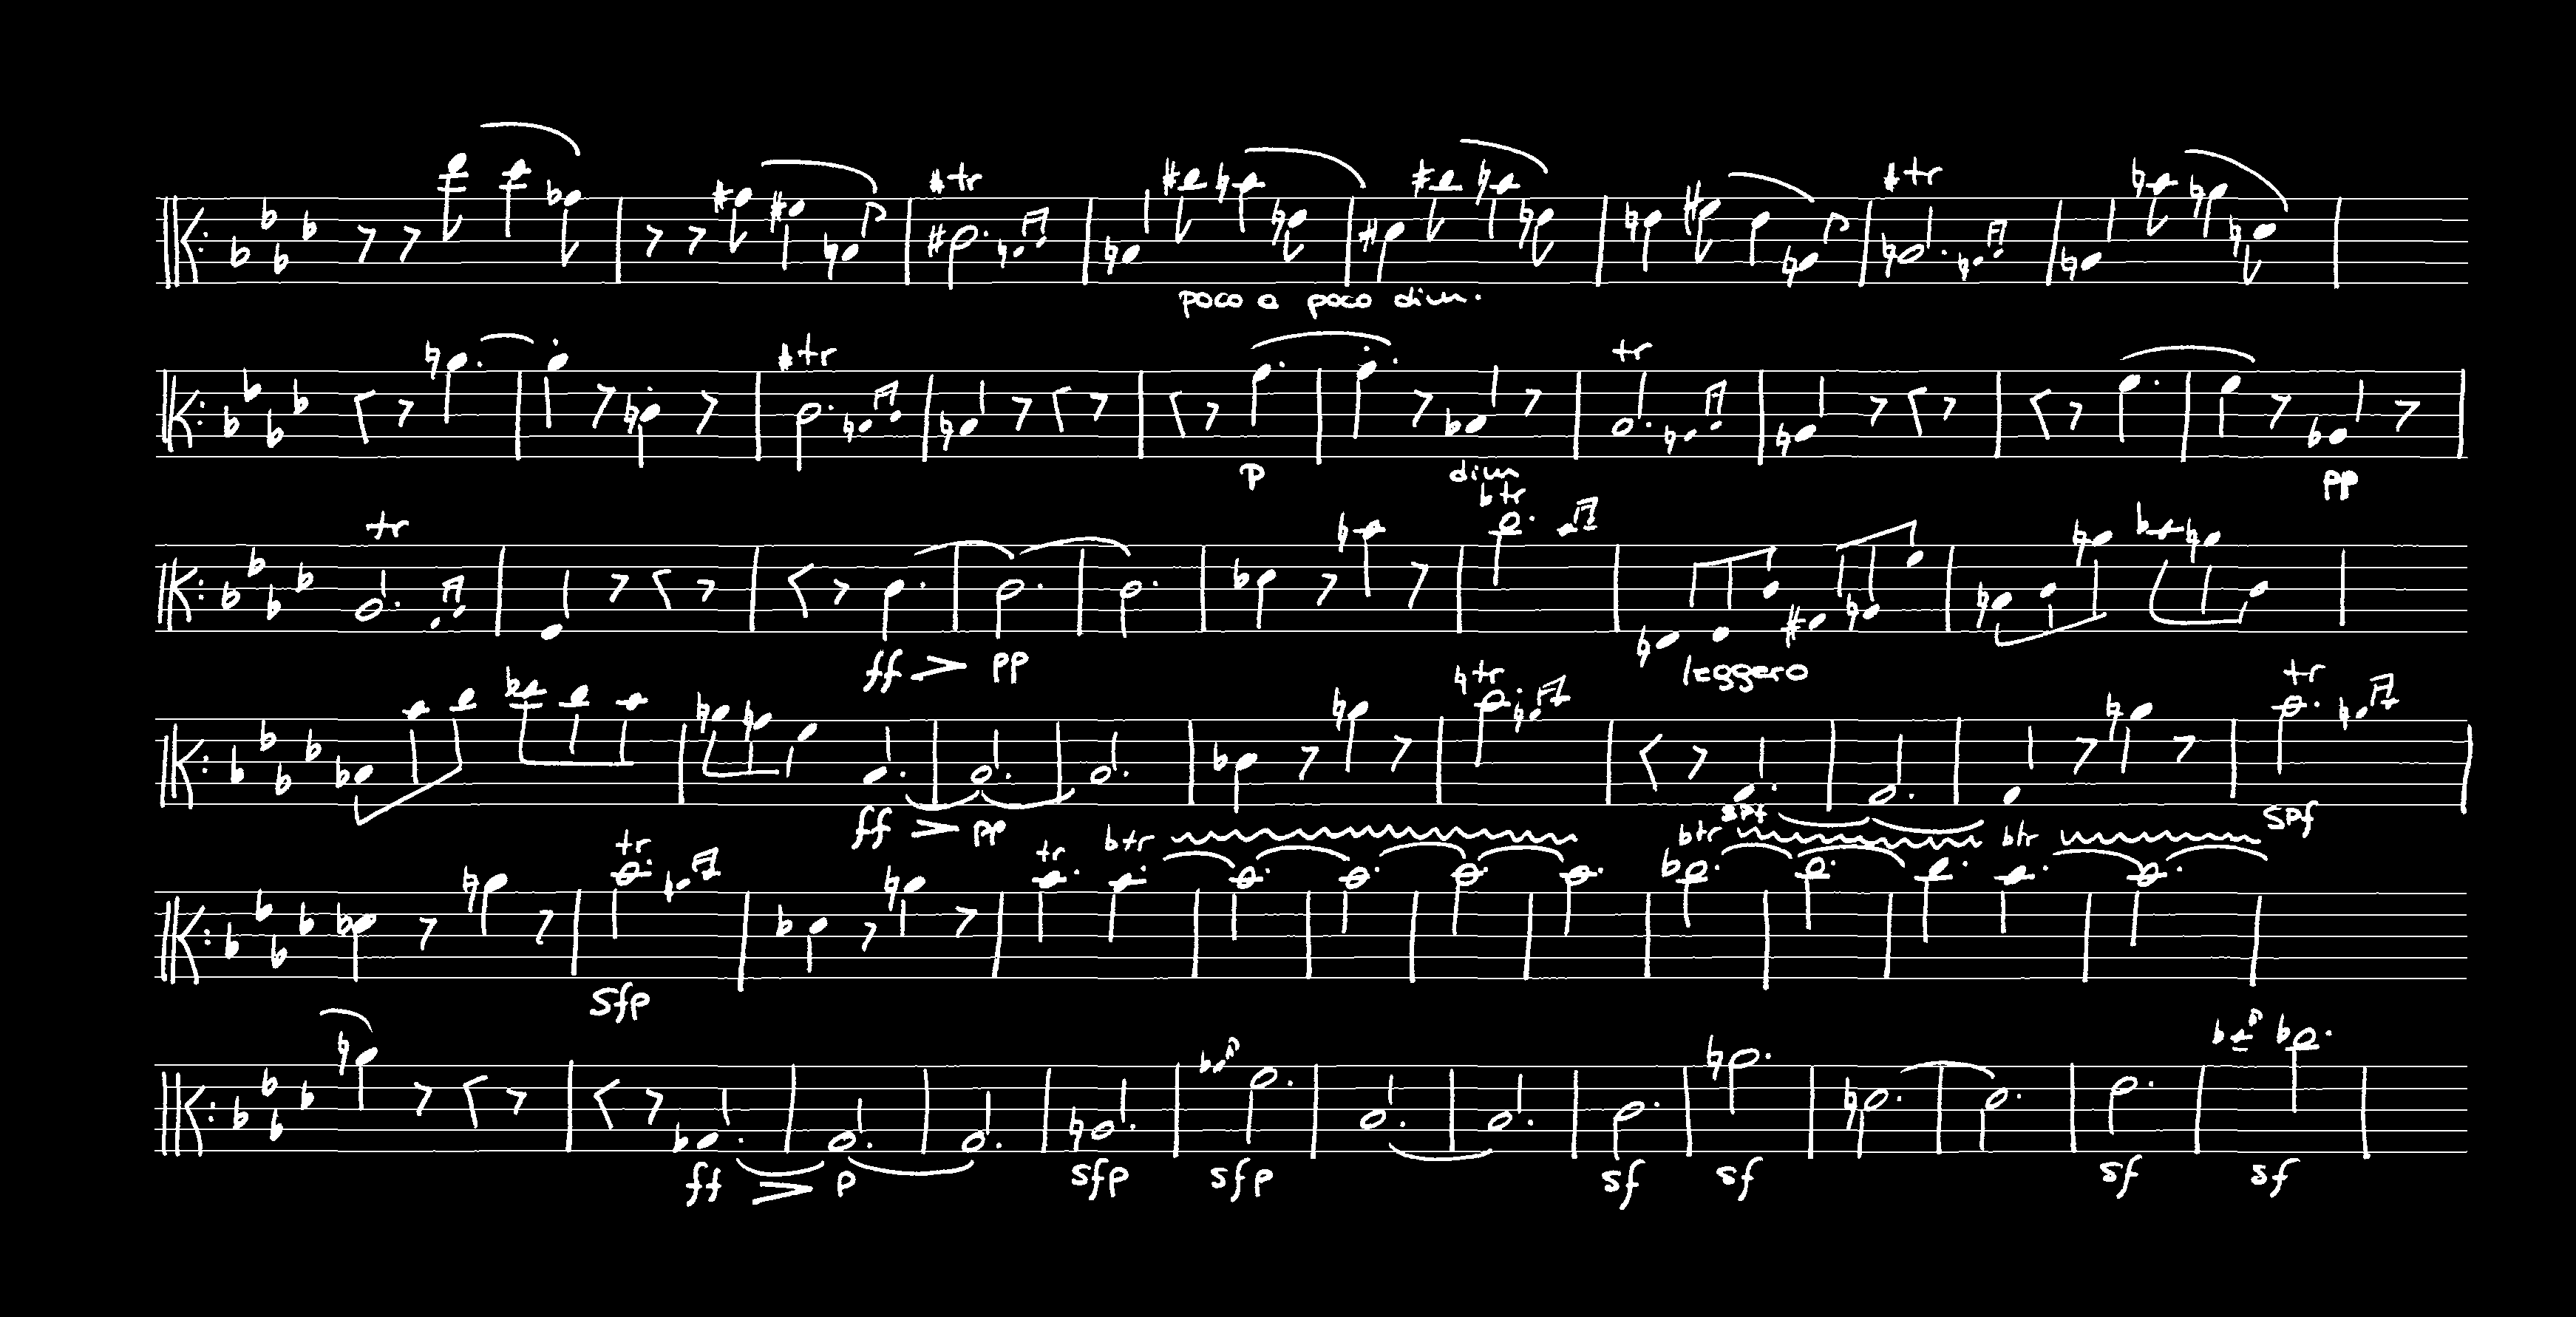 tr tr
poco a poco dim.
tr tr
p dim pp
tr tr
ff > pp leggero
tr tr
ff > pp spf spf
tr tr tr tr tr
sfp
ff > p sfp sfp sf sf sf sf